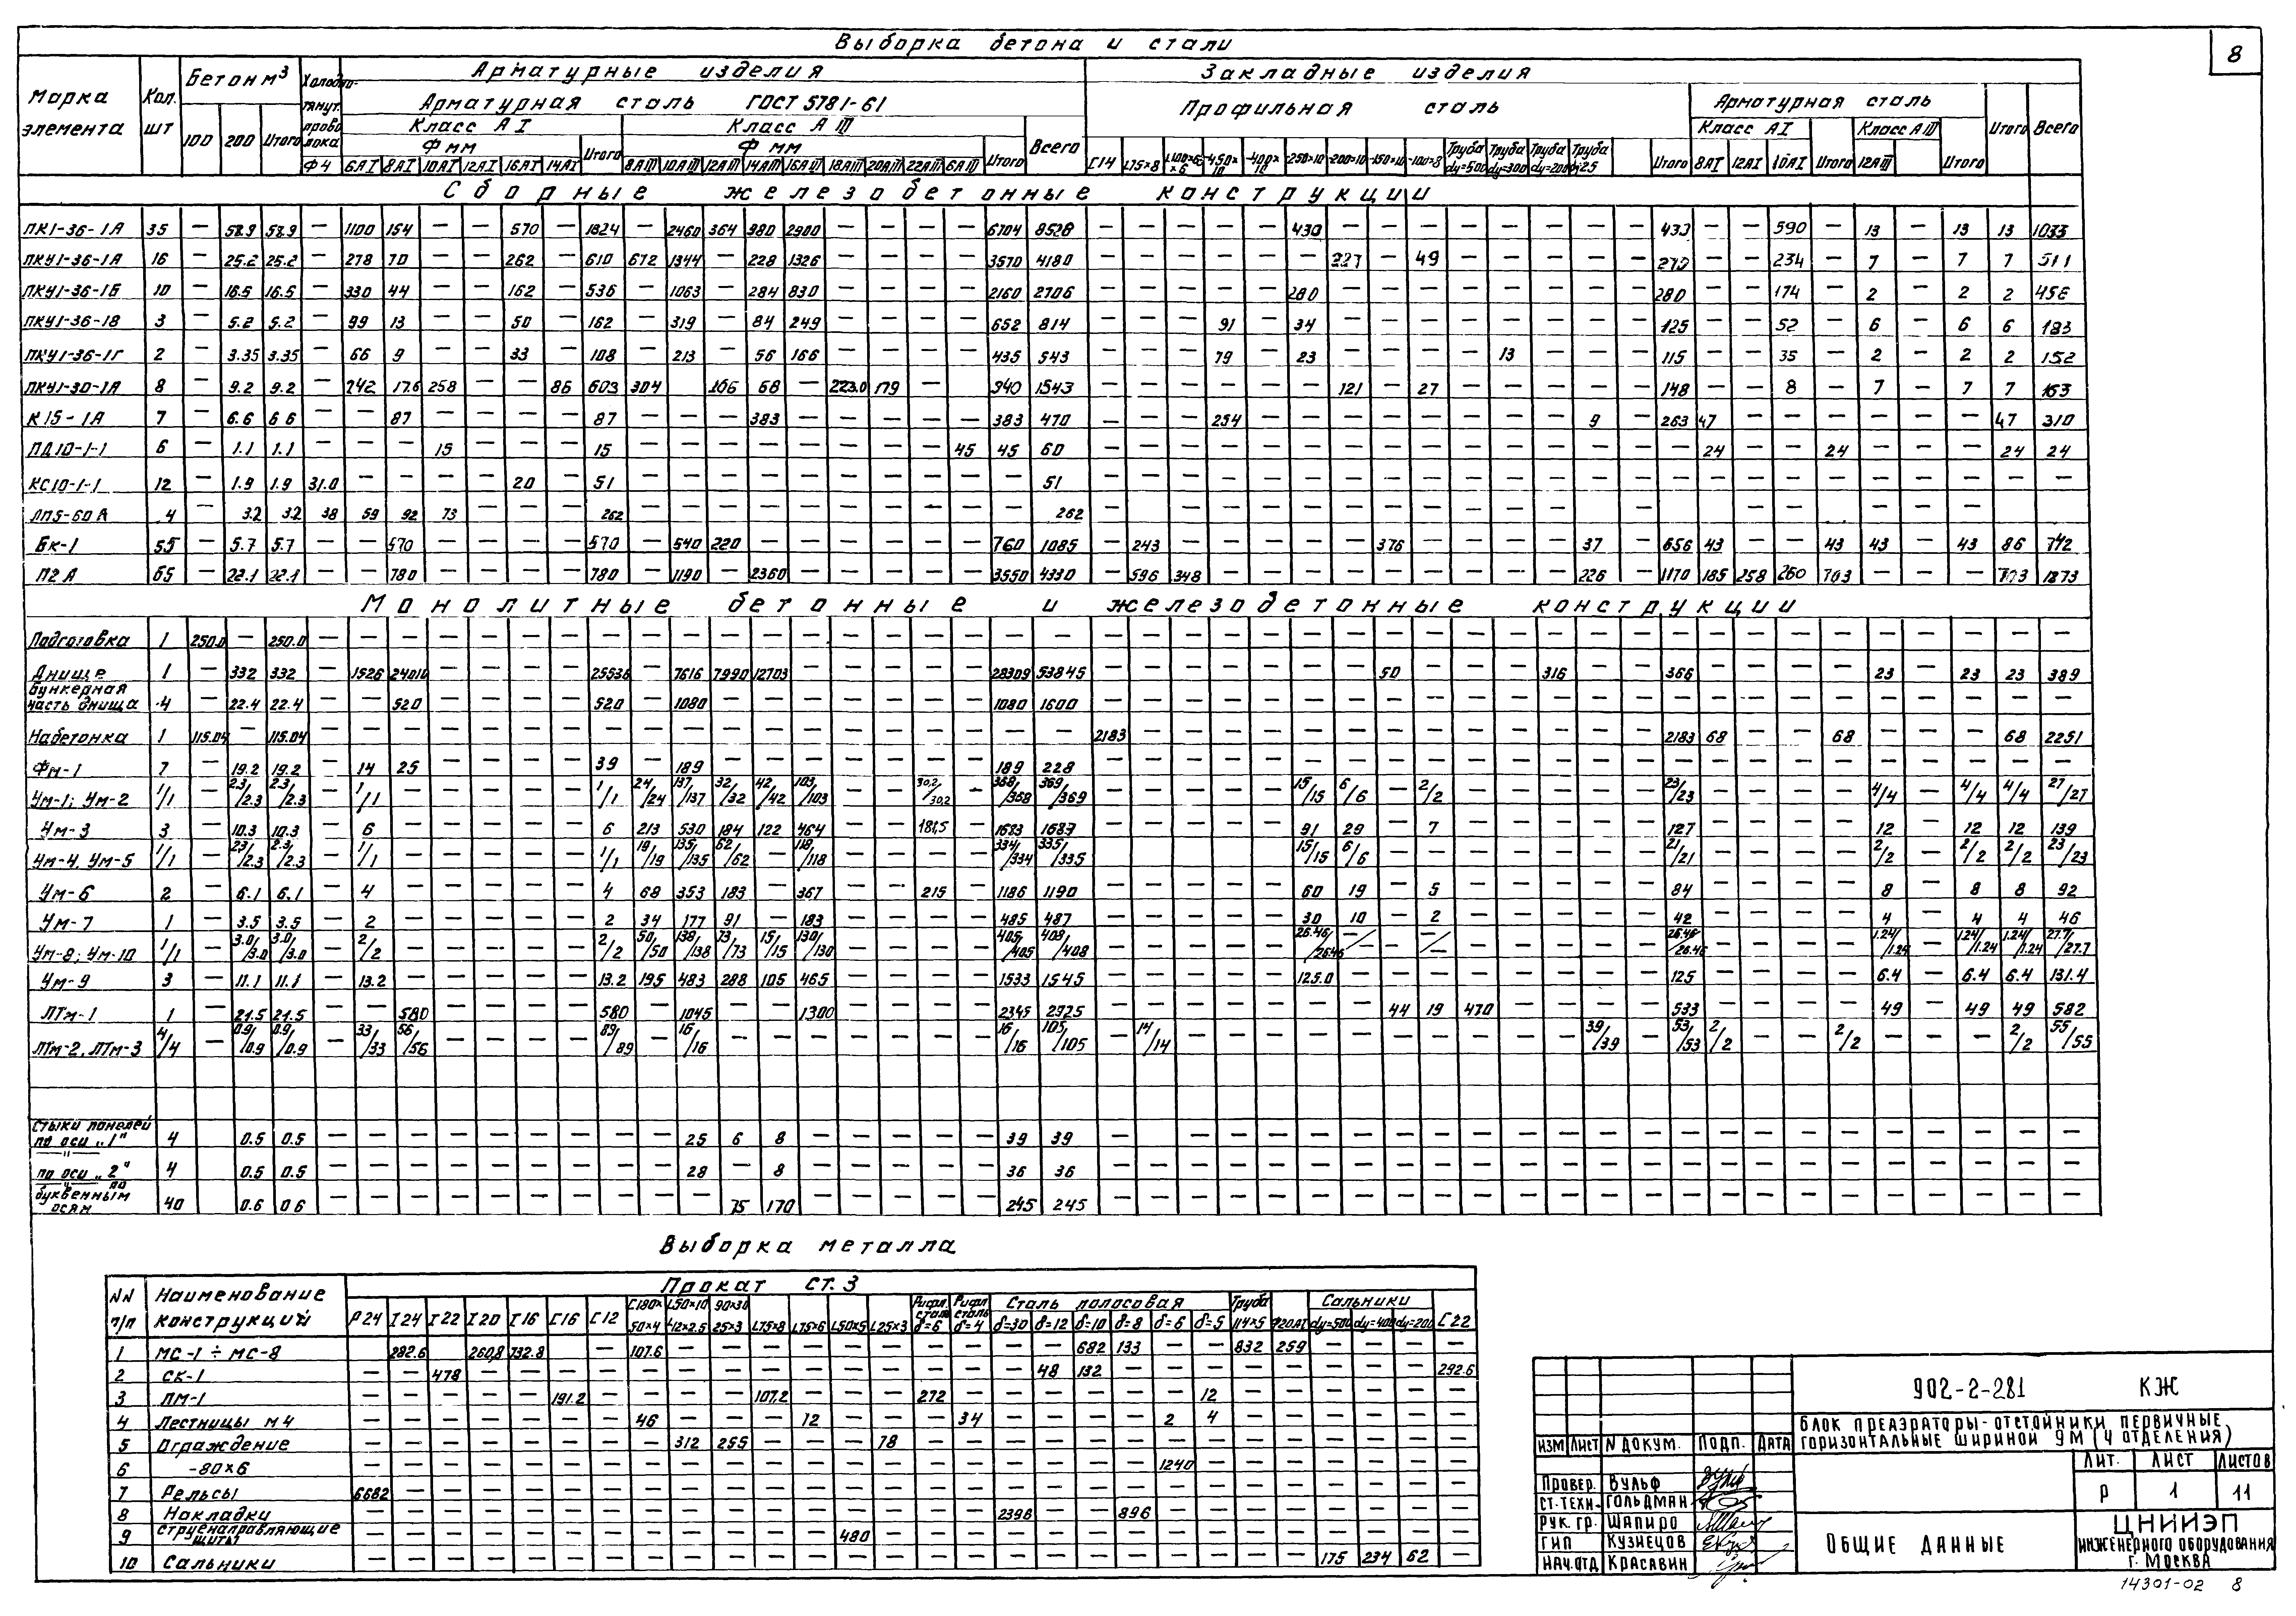 8
Выборка бетона и стали
Марка элемента
Кол. шт
Бетон м³
100 200 Итого
Холодно-тянут. прово лока
Ф4
Арматурные изделия
Арматурная сталь ГОСТ 5781-61
Класс А I
Ф мм
6АI 8АI 10АI 12АI 16АI 14АI Итого
Класс А III
Ф мм
8АIII 10АIII 12АIII 14АIII 16АIII 18АIII 20АIII 22АIII 6АIII Итого
Всего
Закладные изделия
Профильная сталь
[14 L75×8 L100×63×6 -450×10 -400×10 -250×10 -200×10 -150×10 -100×8 Труба dy=500 Труба dy=300 Труба dy=200 Труба Итого
Арматурная сталь
Класс АI
8АI 12АI 10АI Итого
Класс АIII
12АIII Итого
Итого Всего
Сборные железобетонные конструкции
ПК1-36-1А 35 — 58.9 58.9 — 1100 154 — — 570 — 1824 — 2460 364 980 2900 — — — — — 6704 8528 — — — — — 430 — — — — — — — 430 — — 590 — 13 — 13 13 1033
ПКУ1-36-1А 16 — 25.2 25.2 — 278 70 — — 262 — 610 672 1344 — 228 1326 — — — — 3570 4180 — — — — — — 227 — 49 — — — — 279 — — 234 — 7 — 7 7 511
ПКУ1-36-1Б 10 — 16.5 16.5 — 330 44 — — 162 — 536 — 1063 — 284 830 — — — — 2160 2706 — — — — — 280 — — — — — — — 280 — — 174 — 2 — 2 2 456
ПКУ1-36-1В 3 — 5.2 5.2 — 99 13 — — 50 — 162 — 319 — 84 249 — — — — 652 814 — — — 91 — 34 — — — — — — — 125 — — 52 — 6 — 6 6 183
ПКУ1-36-1Г 2 — 3.35 3.35 — 66 9 — — 33 — 108 — 213 — 56 166 — — — — 435 543 — — — 79 — 23 — — — — 13 — — 115 — — 35 — 2 — 2 2 152
ПКУ1-30-1А 8 — 9.2 9.2 — 242 17.6 258 — — 86 603 304 — 106 68 — 223.0 179 — 940 1543 — — — — — — 121 — 27 — — — — 148 — — 8 — 7 — 7 7 163
К15-1А 7 — 6.6 6.6 — — 87 — — — — 87 — — — 383 — — — — — 383 470 — — — 254 — — — — — — — — 9 263 47 — — — — — — 47 310
ПД10-1-1 6 — 1.1 1.1 — — — 15 — — — 15 — — — — — — — — 45 45 60 — — — — — — — — — — — — — — 24 — — 24 — — — 24 24
КС10-1-1 12 — 1.9 1.9 31.0 — — — — 20 — 51 — — — — — — — — — — 51 — — — — — — — — — — — — — — — — — — — — — — —
ЛП5-60А 4 — 3.2 3.2 38 59 92 73 — — — 262 — — — — — — — — — — 262 — — — — — — — — — — — — — — — — — — — — — — —
Бк-1 55 — 5.7 5.7 — — 570 — — — — 570 — 540 220 — — — — — — 760 1085 — 243 — — — — — 376 — — — — 37 656 43 — — 43 43 — 43 86 742
П2А 65 — 22.1 22.1 — — 780 — — — — 780 — 1190 — 2360 — — — — — 3550 4330 — 596 348 — — — — — — — — — 226 1170 185 258 260 703 — — — 703 1873
Монолитные бетонные и железобетонные конструкции
Подготовка 1 250.0 — 250.0 — — — — — — — — — — — — — — — — — — — — — — — — — — — — — — — — — — — — — — — — — —
Днище 1 — 332 332 — 1526 24010 — — — — 25536 — 7616 7990 12703 — — — — — 28309 53845 — — — — — — — 50 — — — 316 — 366 — — — — 23 — 23 23 389
Бункерная часть днища 4 — 22.4 22.4 — — 520 — — — — 520 — 1080 — — — — — — — 1080 1600 — — — — — — — — — — — — — — — — — — — — — — —
Набетонка 1 115.04 — 115.04 — — — — — — — — — — — — — — — — — — — 2183 — — — — — — — — — — — — 2183 68 — — 68 — — — 68 2251
Фм-1 7 — 19.2 19.2 — 14 25 — — — — 39 — 189 — — — — — — — 189 228 — — — — — — — — — — — — — — — — — — — — — — —
Ум-1; Ум-2 1/1 — 2.3/2.3 2.3/2.3 — 1/1 — — — — — 1/1 24/24 137/137 32/32 42/42 103/103 — — 30,2/30,2 — 368/368 369/369 — — — — — 15/15 6/6 — 2/2 — — — — 23/23 — — — — 4/4 — 4/4 4/4 27/27
Ум-3 3 — 10.3 10.3 — 6 — — — — — 6 213 530 184 122 464 — — 181,5 — 1683 1687 — — — — — 91 29 — 7 — — — — 127 — — — — 12 — 12 12 139
Ум-4, Ум-5 1/1 — 2.3/2.3 2.3/2.3 — 1/1 — — — — — 1/1 19/19 135/135 62/62 — 118/118 — — — — 334/334 335/335 — — — — — 15/15 6/6 — — — — — — 21/21 — — — — 2/2 — 2/2 2/2 23/23
Ум-6 2 — 6.1 6.1 — 4 — — — — — 4 68 353 183 — 367 — — 215 — 1186 1190 — — — — — 60 19 — 5 — — — — 84 — — — — 8 — 8 8 92
Ум-7 1 — 3.5 3.5 — 2 — — — — — 2 34 177 91 — 183 — — — — 485 487 — — — — — 30 10 — 2 — — — — 42 — — — — 4 — 4 4 46
Ум-8; Ум-10 1/1 — 3.0/3.0 3.0/3.0 — 2/2 — — — — — 2/2 50/50 138/138 73/73 15/15 130/130 — — — — 405/405 408/408 — — — — — 26.46/26.46 — — — — — — — 26.46/26.46 — — — — 1.24/1.24 — 1.24/1.24 1.24/1.24 27.7/27.7
Ум-9 3 — 11.1 11.1 — 13.2 — — — — — 13.2 195 483 288 105 465 — — — — 1533 1545 — — — — — 125.0 — — — — — — — 125 — — — — 6.4 — 6.4 6.4 131.4
ЛТм-1 1 — 21.5 21.5 — — 580 — — — — 580 — 1045 — — 1300 — — — — 2345 2925 — — — — — — — 44 19 470 — — — 533 — — — — 49 — 49 49 582
ЛТм-2, ЛТм-3 4/4 — 0.9/0.9 0.9/0.9 — 33/33 56/56 — — — — 89/89 — 16/16 — — — — — — — 16/16 105/105 — 14/14 — — — — — — — — — — 39/39 53/53 2/2 — — 2/2 — — — 2/2 55/55
Стыки панелей по оси „1" 4 0.5 0.5 — — — — — — — — — 25 6 8 — — — — — 39 39 — — — — — — — — — — — — — — — — — — — — — — —
—"— по оси „2" 4 0.5 0.5 — — — — — — — — — 28 — 8 — — — — — 36 36 — — — — — — — — — — — — — — — — — — — — — — —
—"— по буквенным осям 40 0.6 0.6 — — — — — — — — — — 75 170 — — — — — 245 245 — — — — — — — — — — — — — — — — — — — — — — —
Выборка металла
NN п/п
Наименование конструкций
Прокат Ст. 3
Р24 I24 I22 I20 I16 [16 [12 [180×50×4 L50×10 -12×2.5 90×30 25×3 L75×8 L75×6 L50×5 L25×3 Рифл. сталь δ=6 Рифл. сталь δ=4
Сталь полосовая
δ=30 δ=12 δ=10 δ=8 δ=6 δ=5
Труба 114×5 Ф20АI
Сальники
dy=500 dy=400 dy=200
[22
1 МС-1 ÷ МС-8 — 282.6 — 260,8 732.8 — — 107.6 — — — — — — — — — — 682 133 — — 832 259 — — — —
2 СК-1 — — 478 — — — — — — — — — — — — — — 48 132 — — — — — — — — 292.6
3 ПМ-1 — — — — — 191.2 — — — — 107,2 — — — 272 — — — — — — 12 — — — — — —
4 Лестницы М4 — — — — — — — 46 — — — 12 — — — 34 — — — — 2 4 — — — — — —
5 Ограждение — — — — — — — — 312 255 — — — 78 — — — — — — — — — — — — — —
6 -80×6 — — — — — — — — — — — — — — — — — — — — 1240 — — — — — — —
7 Рельсы 6682 — — — — — — — — — — — — — — — — — — — — — — — — — — —
8 Накладки — — — — — — — — — — — — — — — — 2398 — — 896 — — — — — — — —
9 Струенаправляющие щиты — — — — — — — — — — — — 480 — — — — — — — — — — — — — — —
10 Сальники — — — — — — — — — — — — — — — — — — — — — — — — 175 234 62 —
902-2-281 КЖ
Блок преаэраторы-отстойники первичные
горизонтальные шириной 9м (4 отделения)
Изм Лист N докум. Подп. Дата
Провер. Вульф
Ст.техн. Гольдман
Рук. гр. Шапиро
ГИП Кузнецов
Нач.отд Красавин
Лит. Лист Листов
Р 1 11
Общие данные
ЦНИИЭП
инженерного оборудования
г. Москва
14301-02 8